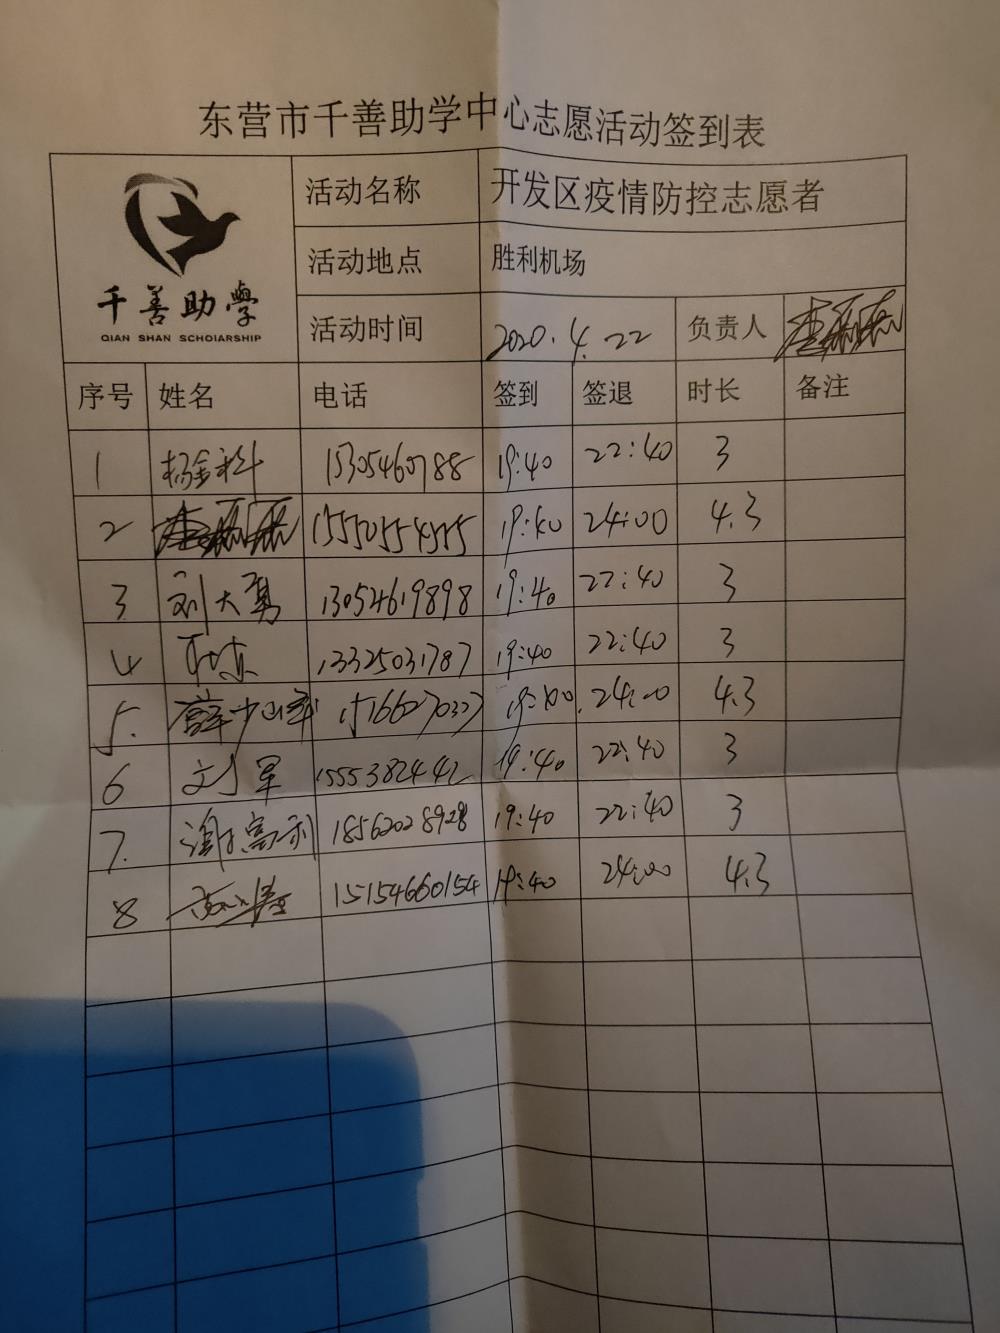 东营市千善助学中心志愿活动签到表
千善助學
QIAN SHAN SCHOIARSHIP
活动名称 开发区疫情防控志愿者
活动地点 胜利机场
活动时间 2020.4.22 负责人
序号 姓名 电话 签到 签退 时长 备注
1 杨金科 15305460788 19:40 22:40 3
2 19:40 24:00 4.3
3 刘大勇 13054619898 19:40 22:40 3
4 13325031787 19:40 22:40 3
5. 15166270327 24:00 4.3
6 刘军 19:40 22:40 3
7. 谢富利 18562028928 19:40 22:40 3
8 15154660154 19:40 24:00 4.3